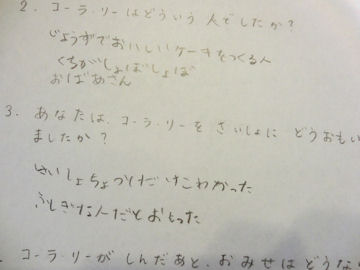 2. コ・ラ・リーはどういう人でしたか?
じょうずでおいしいケーキをつくる人
くちがしょぼしょぼ
おばあさん
3. あなたは、コ・ラ・リーを さいしょに どうおもい
ましたか?
さいしょちょっとだけこわかった
ふしぎな人だとおもった
コ・ラ・リーが しんだあと、おみせはどうな